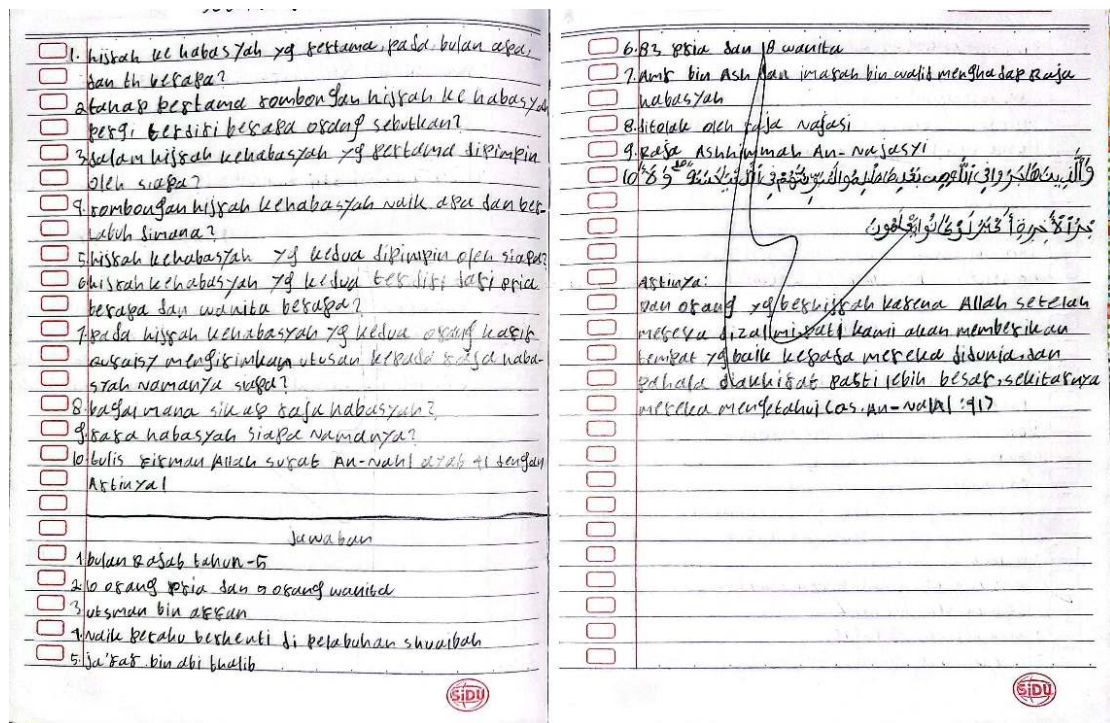 1. hijrah ke habasyah yg pertama, pada bulan apa,
dan th berapa?
2 tahap pertama rombongan hijrah ke habasyah
pergi terdiri berapa orang sebutkan?
3. dalam hijrah kehabasyah yg pertama dipimpin
oleh siapa?
4. rombongan hijrah kehabasyah naik apa dan ber-
labuh dimana?
5. hijrah kehabasyah yg kedua dipimpin oleh siapa?
6 hijrah kehabasyah yg kedua terdiri dari pria
berapa dan wanita berapa?
7. pada hijrah kehabasyah yg kedua orang kafir
quraisy mengirimkan utusan kepada raja haba-
syah namanya siapa?
8. bagaimana sikap raja habasyah?
9. raja habasyah siapa namanya?
10. tulis firman Allah surat An-nahl ayat 41 dengan
Artinya!
Jawaban
1. bulan Rajab tahun-5
2. 10 orang pria dan 5 orang wanita
3 utsman bin affan
4. Naik perahu berhenti di pelabuhan shuaibah
5. ja'far bin abi thalib
SiDU
6. 83 pria dan 18 wanita
7. Amr bin Ash dan imarah bin walid menghadap Raja
habasyah
8. ditolak oleh raja Najasi
9. Raja Ashhimmah An-Najasyi
10
Artinya:
Dan orang yg berhijrah karena Allah setelah
mereka dizalimi, pati kami akan memberikan
tempat yg baik kepada mereka didunia, dan
pahala diakhirat pasti lebih besar, sekitarnya
mereka mengetahui (QS. An-Nahl : 41)
SiDU